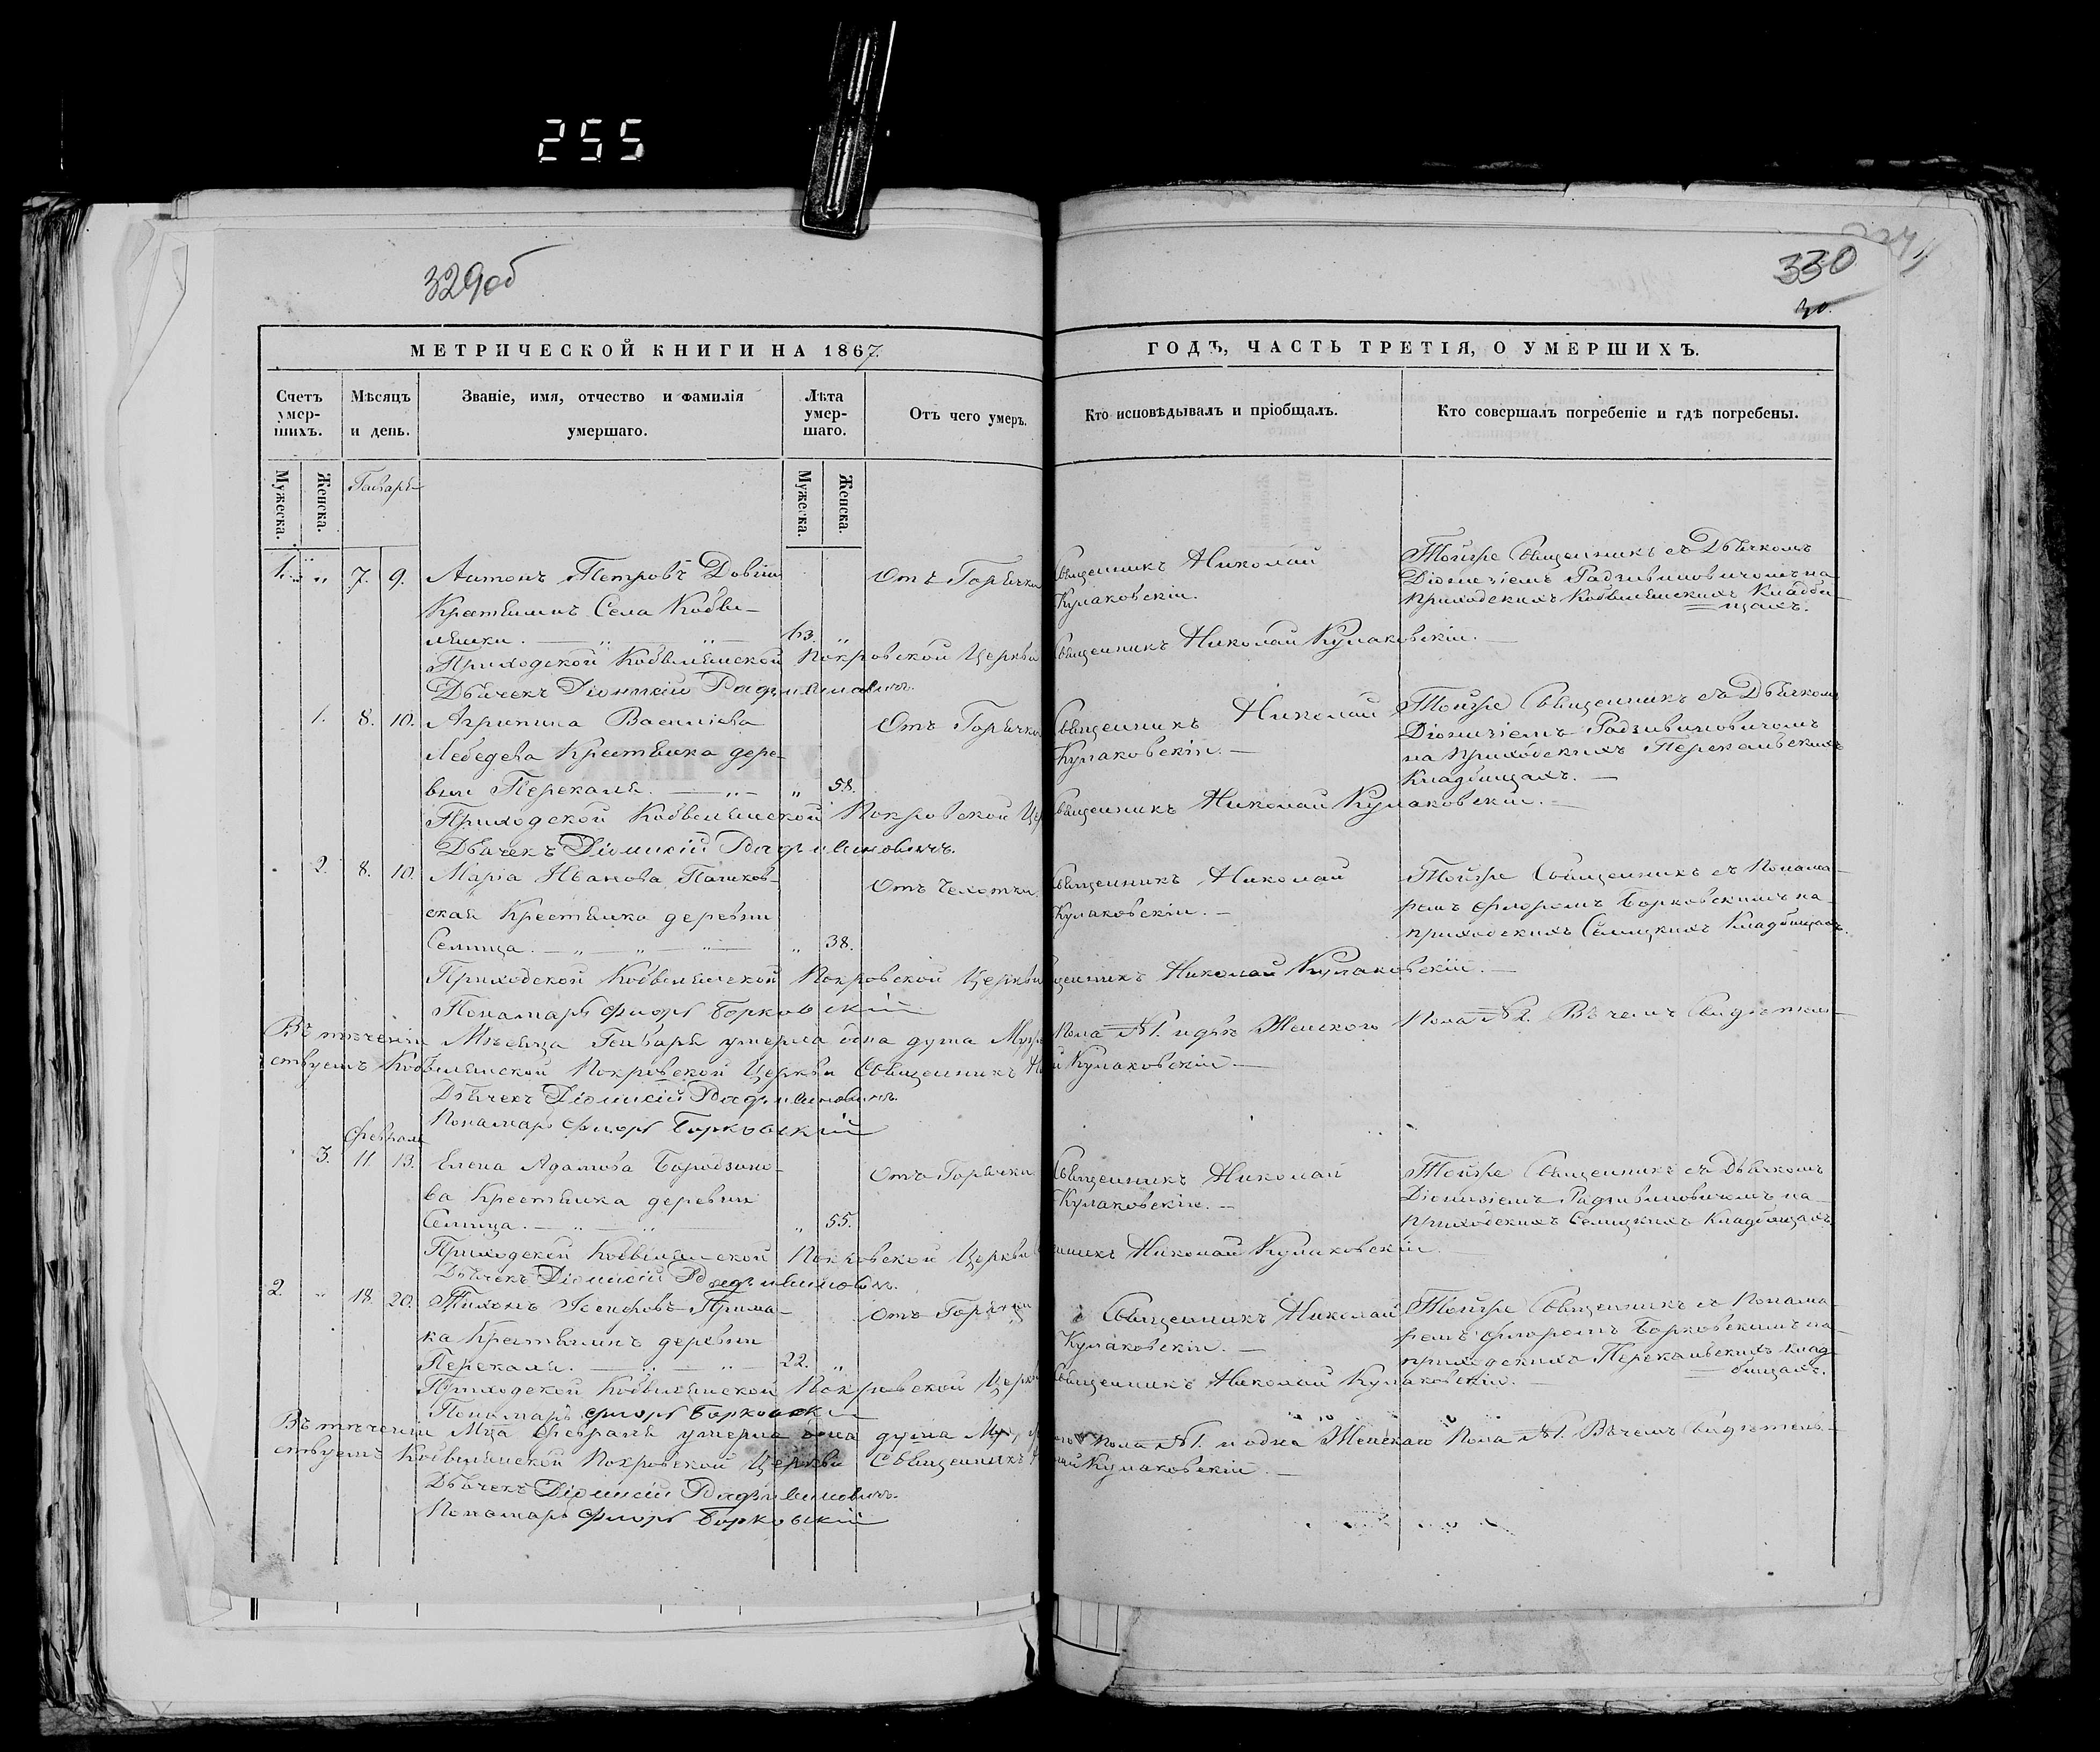 255
329об
330
МЕТРИЧЕСКОЙ КНИГИ НА 1867
ГОДЪ, ЧАСТЬ ТРЕТІЯ, О УМЕРШИХЪ.
Счетъ умер-
шихъ.
Мѣсяцъ
и день.
Званіе, имя, отчество и фамилія
умершаго.
Лѣта
умер-
шаго.
Отъ чего умеръ.
Кто исповѣдывалъ и пріобщалъ.
Кто совершалъ погребеніе и гдѣ погребены.
Мужеска.
Женска.
Генварь
Мужеска.
Женска.
1. „ 7. 9. Антонъ Петровъ
Крестьянинъ Села Кобы-
ляшки. 63. „
Отъ Горячки
Священникъ Николай
Кулаковскій.
Тойже Священникъ съ Дьячкомъ
Діонизіемъ Радзивиновичомъ на
приходскихъ Кобылянскихъ Кладби-
щахъ.
Приходской Кобылянской Покровской Церкви Священникъ Николай Кулаковскій.
Дьячекъ Діонисій Радзивиновичъ.
1. 8. 10. Агрипина Василіева
Лебедева Крестьянка дере-
вни Перекаля. „ 58.
Отъ Горячки
Священникъ Николай
Кулаковскій.
Тойже Священникъ съ Дьячкомъ
Діонизіемъ Радзивиновичомъ
на приходскихъ Перекальскихъ
Кладбищахъ.
Приходской Кобылянской Покровской Священникъ Николай Кулаковскій.
Дьячекъ Діонисій Радзивиновичъ.
2. 8. 10. Марія Иванова
ская Крестьянка деревни
Селища. „ 38.
Отъ Чехотки
Священникъ Николай
Кулаковскій.
Тойже Священникъ съ Понама-
ремъ Флоромъ Борковскимъ на
приходскихъ Селицкихъ Кладбищахъ.
Приходской Кобылянской Покровской Церкви Николай Кулаковскій.
Понамарь Флоръ Борковскій
Въ теченіи Мѣсяца Генваря умерла одна душа Пола №1. и двѣ Женского Пола №2. Въ чемъ Свидѣтель-
ствуетъ Кобылянской Покровской Церкви Священникъ Кулаковскій.
Дьячекъ Діонисій Радзивиновичъ.
Понамарь Флоръ Борковскій
Февраль
3. 11. 13. Елена Адамова Бородзино-
ва Крестьянка деревни
Селища. „ 55.
Отъ Горячки
Священникъ Николай
Кулаковскій.
Тойже Священникъ съ Дьячкомъ
Діонизіемъ Радзивиновичемъ на
приходскихъ Селицкихъ Кладбищахъ.
Приходской Кобылянской Покровской Церкви Николай Кулаковскій.
Дьячекъ Діонисій Радзивиновичъ.
2. „ 18. 20. Іосифовъ Прима-
ка Крестьянинъ деревни
Перекаля. 22. „
Отъ Горячки
Священникъ Николай
Кулаковскій.
Тойже Священникъ съ Понама-
ремъ Флоромъ Борковскимъ на
приходскихъ Перекальскихъ Клад-
бищахъ.
Приходской Кобылянской Покровской Священникъ Николай Кулаковскій.
Понамарь Флоръ Борковскій
Въ теченіи Мца Февраля умерла одна душа Пола №1. и одна Женскаго Пола №1. Въ чемъ Свидѣтель-
ствуетъ Кобылянской Покровской Церкви Священникъ Кулаковскій.
Дьячекъ Діонисій Радзивиновичъ.
Понамарь Флоръ Борковскій